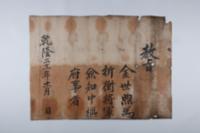 敎旨
金世鼎爲
折衝將軍
僉知中樞
府事者
乾隆 年 月 日